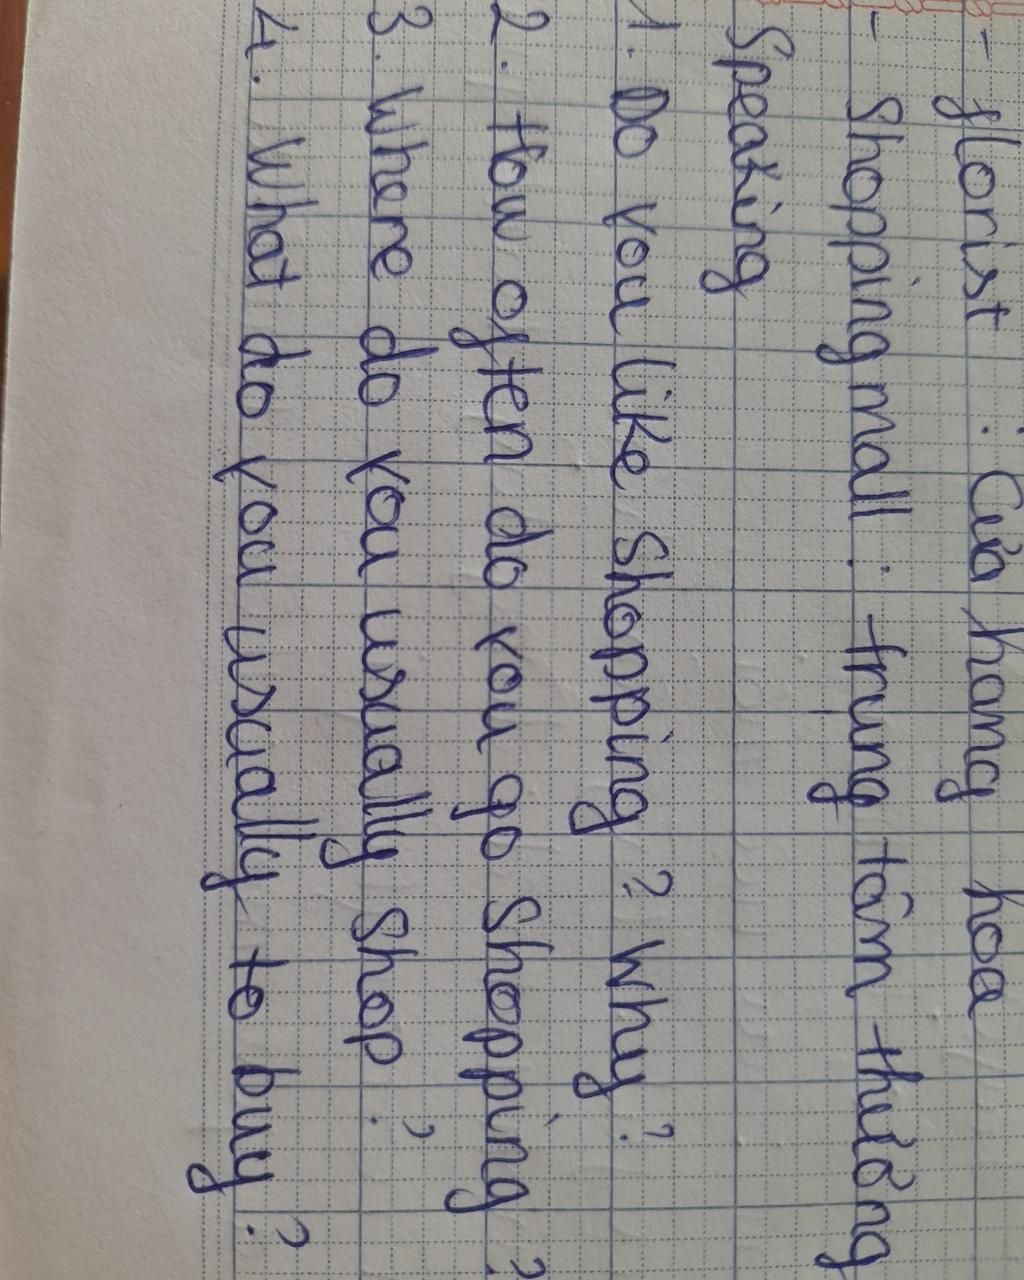 - florist : Cửa hang hoa
- Shopping mall : trung tâm thường
Speaking
1. Do you like Shopping ? Why ?
2. How often do you go Shopping ?
3. Where do you usually Shop ?
4. What do you usually to buy ?